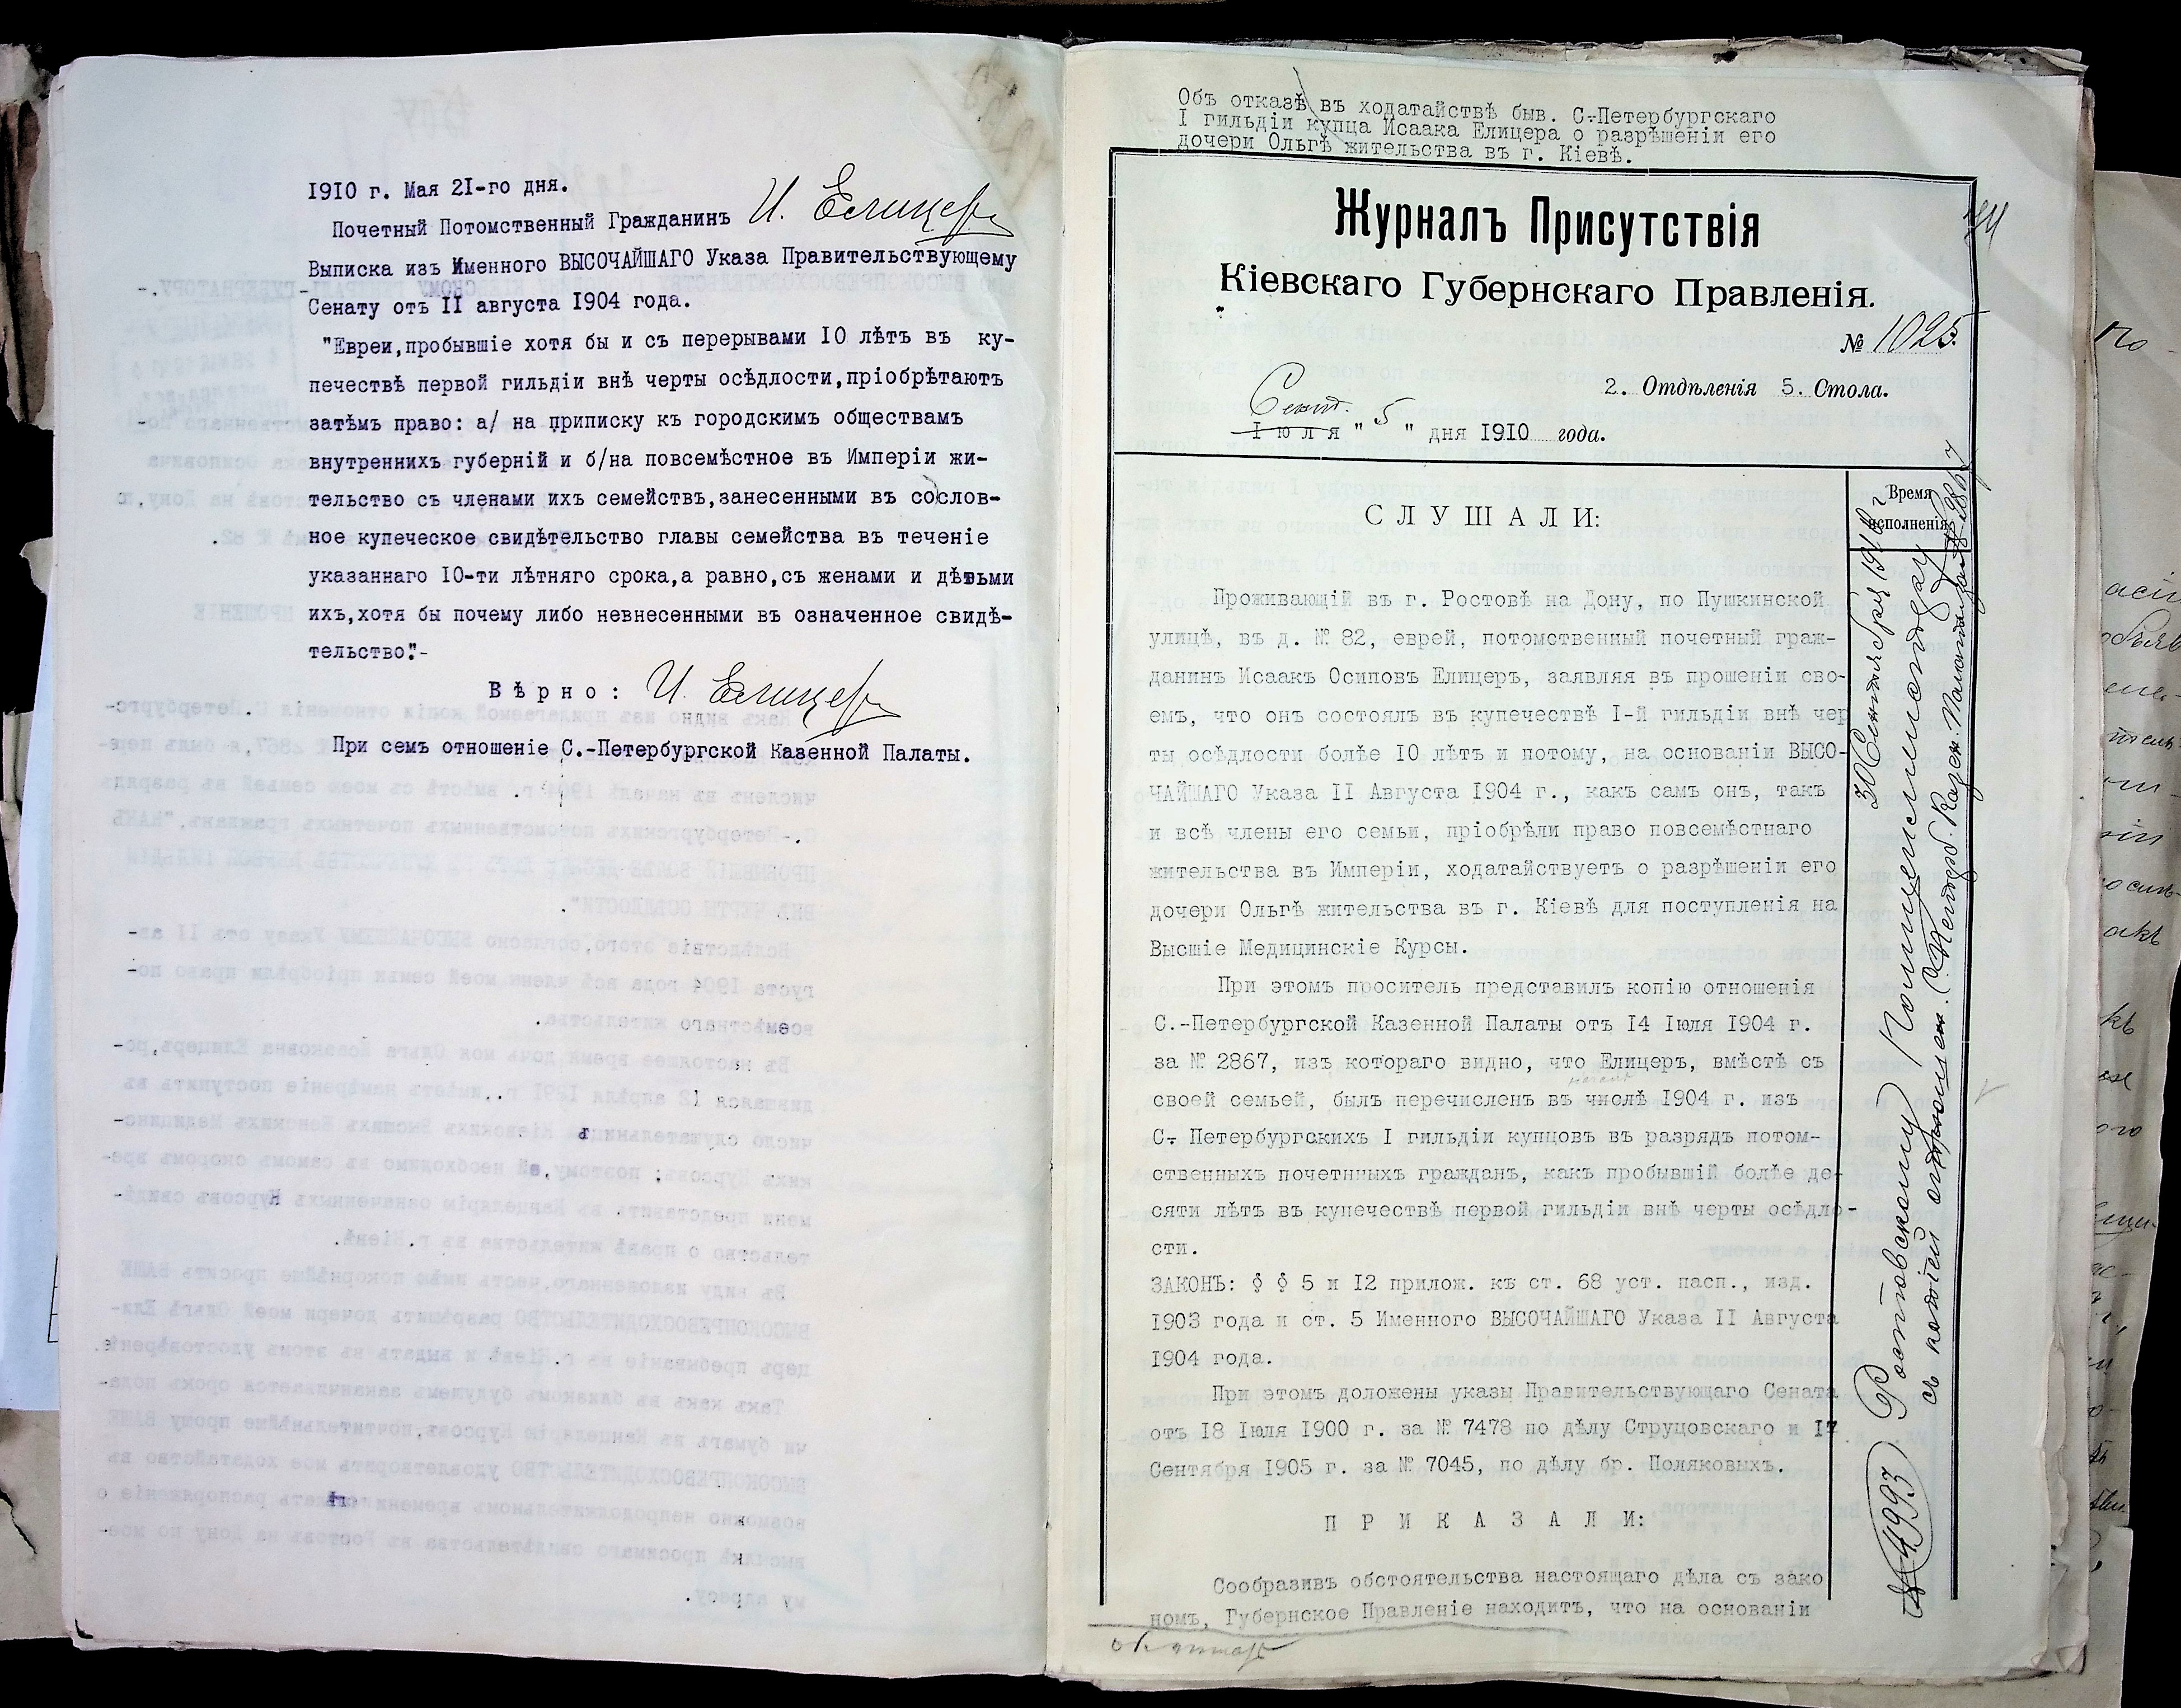 1910 г. Мая 21-го дня.
Почетный Потомственный Гражданинъ И. Елицеръ
Выписка изъ Именного ВЫСОЧАЙШАГО Указа Правительствующему
Сенату отъ II августа 1904 года.
"Евреи,пробывшіе хотя бы и съ перерывами 10 лѣтъ въ ку-
печествѣ первой гильдіи внѣ черты осѣдлости,пріобрѣтаютъ
затѣмъ право: а/ на приписку къ городскимъ обществамъ
внутреннихъ губерній и б/на повсемѣстное въ Имперіи жи-
тельство съ членами ихъ семействъ,занесенными въ сослов-
ное купеческое свидѣтельство главы семейства въ теченіе
указаннаго 10-ти лѣтняго срока,а равно,съ женами и дѣтьми
ихъ,хотя бы почему либо невнесенными въ означенное свидѣ-
тельство".-
Вѣрно: И. Елицеръ
При семъ отношеніе С.-Петербургской Казенной Палаты.
Объ отказѣ въ ходатайствѣ быв. С-Петербургскаго
I гильдіи купца Исаака Елицера о разрѣшеніи его
дочери Ольгѣ жительства въ г. Кіевѣ.
Журналъ Присутствія
Кіевскаго Губернскаго Правленія.
№ 1025.
2. Отдѣленія 5. Стола.
Сент.
Іюля " 5 " дня 1910 года.
СЛУШАЛИ:
Время
исполненія
Проживающій въ г. Ростовѣ на Дону, по Пушкинской
улицѣ, въ д. № 82, еврей, потомственный почетный граж-
данинъ Исаакъ Осиповъ Елицеръ, заявляя въ прошеніи сво-
емъ, что онъ состоялъ въ купечествѣ I-й гильдіи внѣ чер
ты осѣдлости болѣе 10 лѣтъ и потому, на основаніи ВЫСО-
ЧАЙШАГО Указа II Августа 1904 г., какъ самъ онъ, такъ
и всѣ члены его семьи, пріобрѣли право повсемѣстнаго
жительства въ Имперіи, ходатайствуетъ о разрѣшеніи его
дочери Ольгѣ жительства въ г. Кіевѣ для поступленія на
Высшіе Медицинскіе Курсы.
При этомъ проситель представилъ копію отношенія
С.-Петербургской Казенной Палаты отъ 14 Іюля 1904 г.
за № 2867, изъ котораго видно, что Елицеръ, вмѣстѣ съ
своей семьей, былъ перечисленъ въ числѣ 1904 г. изъ
С- Петербургскихъ I гильдіи купцовъ въ разрядъ потом-
ственныхъ почетнныхъ гражданъ, какъ пробывшій болѣе де-
сяти лѣтъ въ купечествѣ первой гильдіи внѣ черты осѣдло-
сти.
ЗАКОНЪ: § § 5 и 12 прилож. къ ст. 68 уст. пасп., изд.
1903 года и ст. 5 Именного ВЫСОЧАЙШАГО Указа II Августа
1904 года.
При этомъ доложены указы Правительствующаго Сената
отъ 18 Іюля 1900 г. за № 7478 по дѣлу Струцовскаго и 17
Сентября 1905 г. за № 7045, по дѣлу бр. Поляковыхъ.
ПРИКАЗАЛИ:
Сообразивъ обстоятельства настоящаго дѣла съ зако
номъ, Губернское Правленіе находитъ, что на основаніи
30 Сентября 1910 г
№ 4993 Ростовскому Полицеймейстеру
съ копіей отношен. С Петерб. Казен. Палаты за № 2867